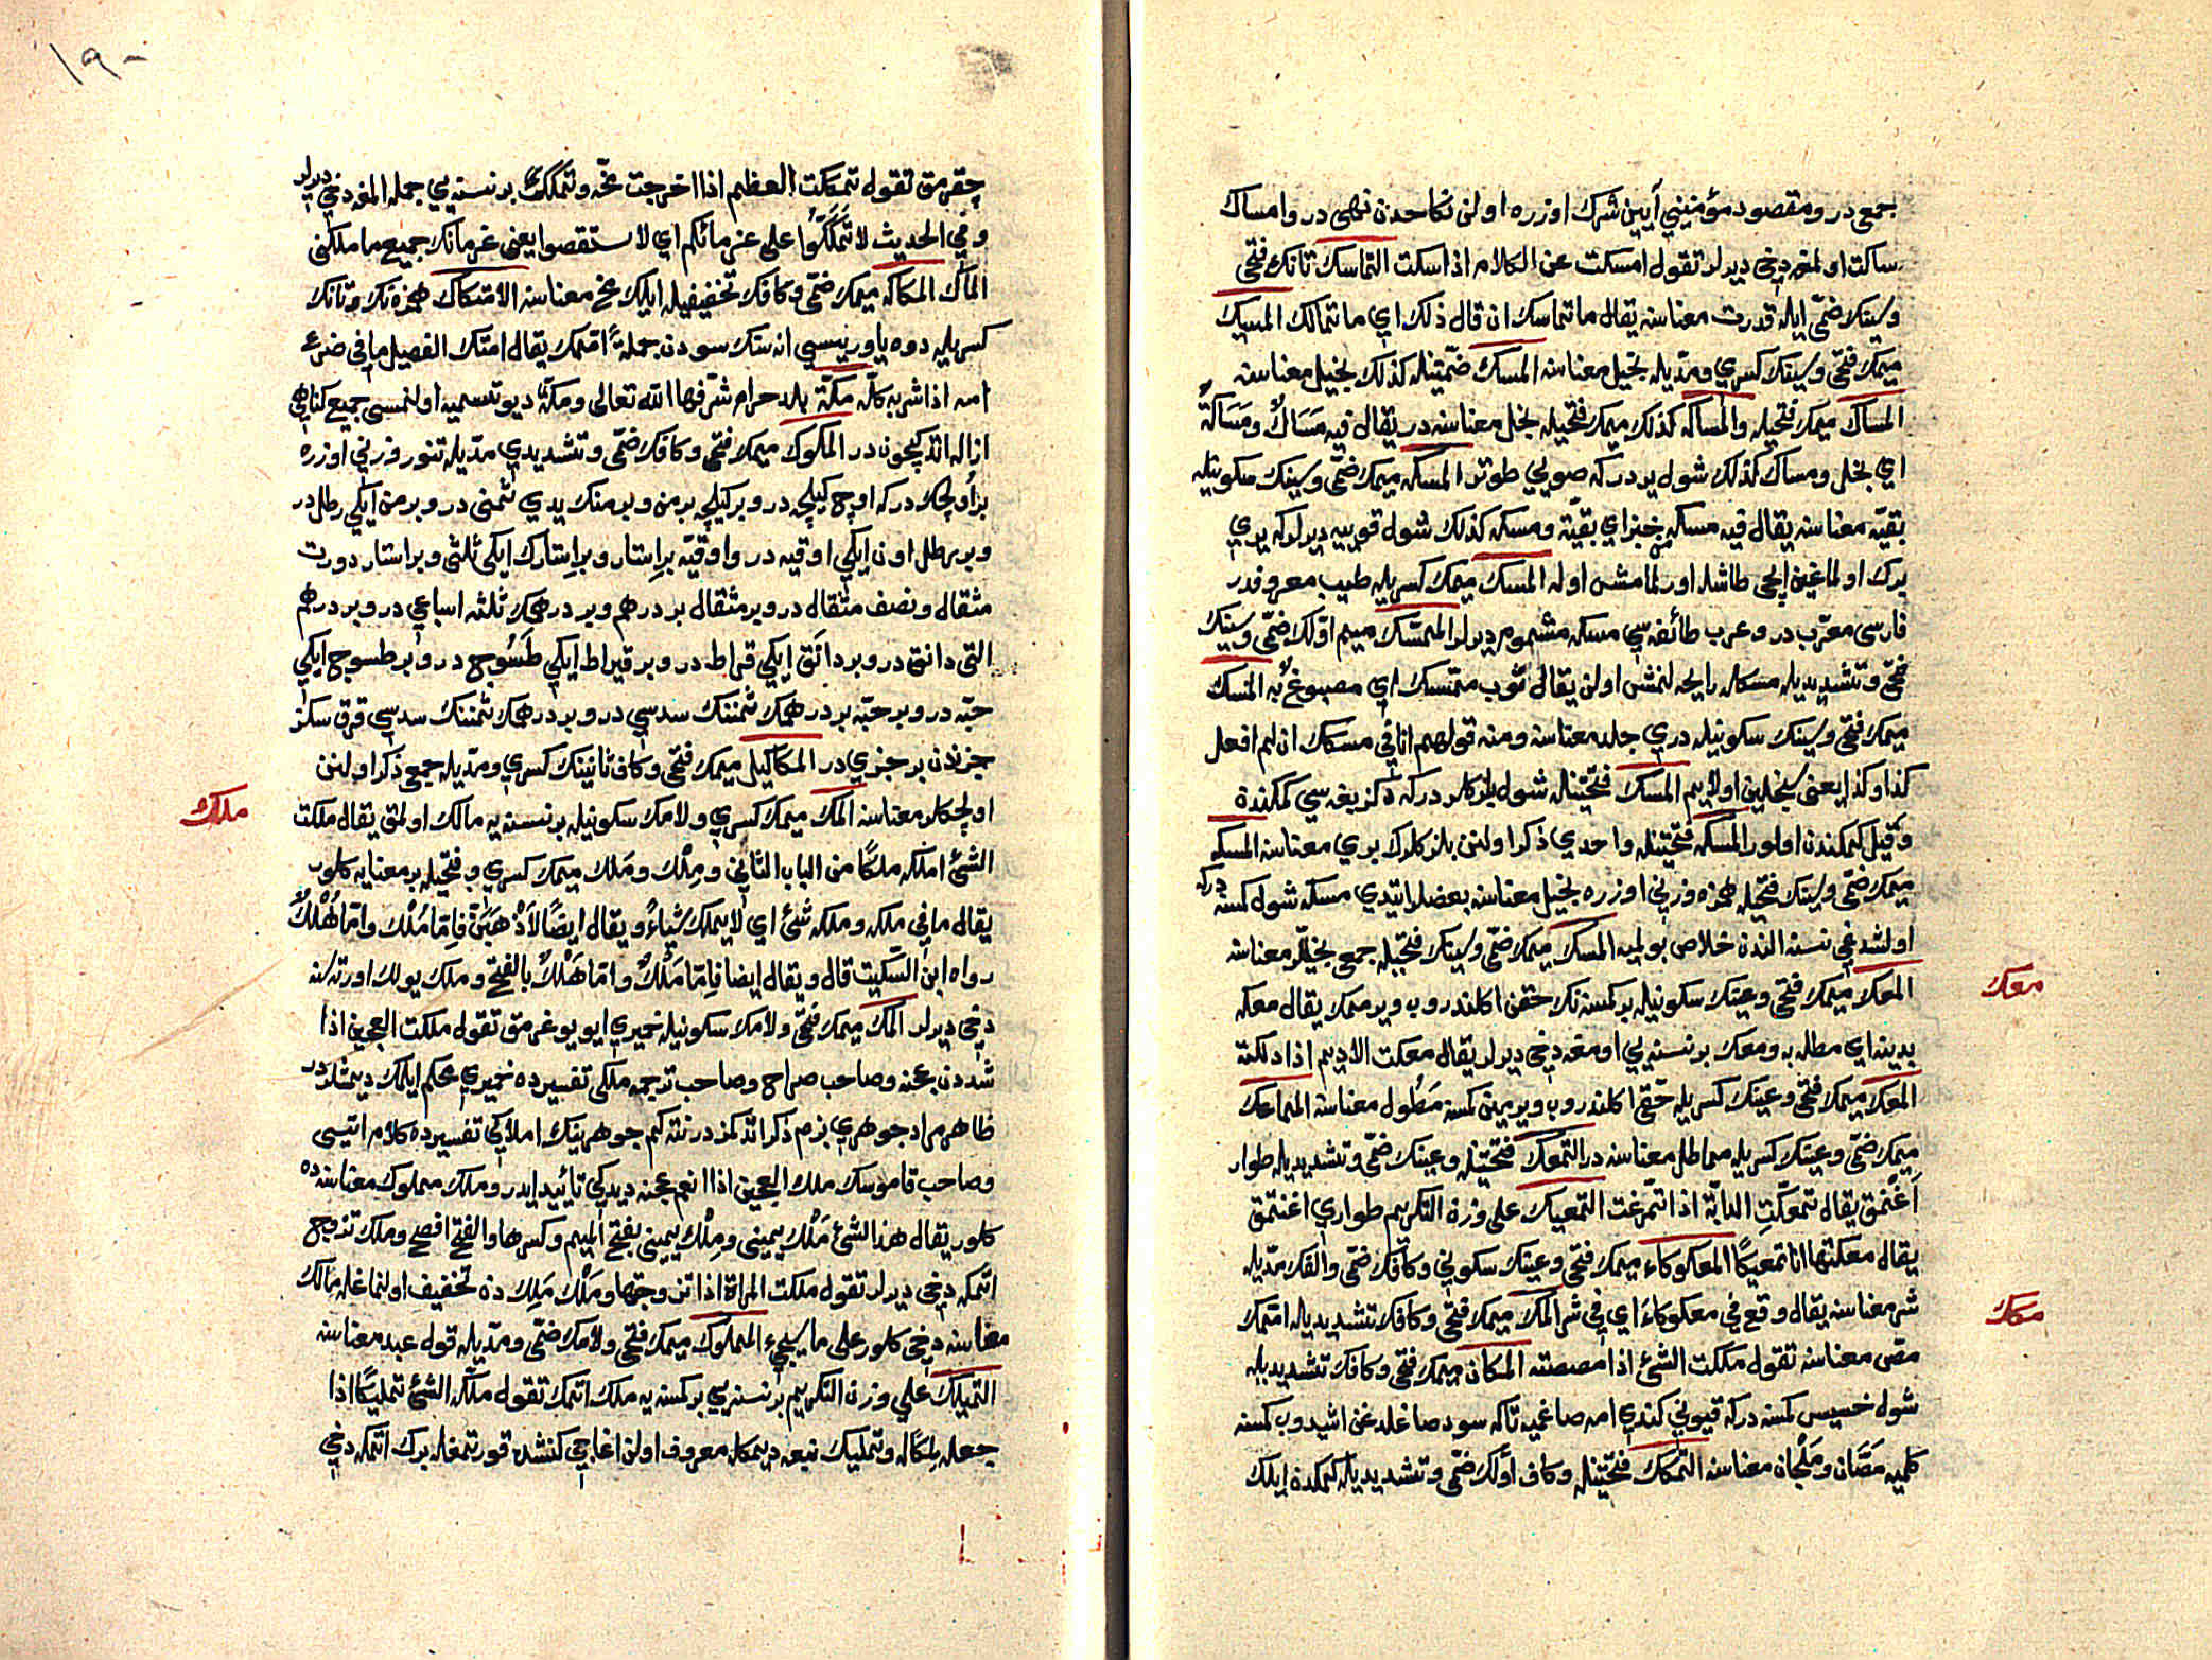 جمع در ومقصود مؤمنيني آيين شرك اوزره اولن نكاحدن نهى در وامساك
ساكت اولمغه دخى ديرلر تقول امسكت عن الكلام اذا سكت التماسك تانك فتحى
وسينك ضمّى ايله قدرت معناسنه يقال ما تماسك ان قال ذلك اي ما تمالك المسيك
ميمك فتحى وسينك كسري ومدّيله بخيل معناسنه المسك ضمّتينله كذلك بخيل معناسنه
المساك ميمك فتحيله والمساكه كذلك ميمك فتحيله بخل معناسنه در يقال فيه مَسَاكٌ ومَسَاكَةٌ
اي بخل ومساك كذلك شول يردركه صويي طوتر المسكه ميمك ضمّى وسينك سكونيله
بقيّه معناسنه يقال فيه مسكه خبز اي بقيّة ومسكه كذلك شول قوييه ديرلركه يري
برك اولماغين ايچى طاشله اورلمامش اوله المسك ميمك كسريله طيب معروفدر
فارسى معرّب در وعرب طائفه سي مسكه مشموم ديرلر الممسّك ميم اوّلك ضمّى وسينك
فتحى وتشديديله مسكله رايحه لنمش اولن يقال ثوب ممسّك اي مصبوغ به المسك
ميمك فتحى وسينك سكونيله دري جلد معناسنه ومنه قولهم انا في مسكك ان لم افعل
كذا وكذا يعنى سنجلين اولايم المسك فتحتينله شول بلزكلر دركه دكز بغه سي كمكندة
وقيل كمكندن اولور المسكه فتحتينله واحدي ذكر اولنن بلزكلرك بري معناسنه المسكه
ميمك ضمّى وسينك فتحيله همزه وزني اوزره بخيل معناسنه بعضلر ايتدي مسكه شول كمسه دركه
اولشدغى نسنه الندن خلاص بولميه المسك ميمك ضمّى وسينك فتحيله جمع بخيللر معناسنه
المعك ميمك فتحى وعينك سكونيله بر كمسنه نك حقنى اكلندروب ويرممك يقال معكه
بدينه اي مطله به ومعك بر نسنه يي اومغه دخى ديرلر يقال معكت الاديم اذا دلكته
المعك ميمك فتحى وعينك كسريله حقى اكلندروب ويرمين كمسه مَطُول معناسنه المماعك
ميمك ضمّى وعينك كسريله مماطل معناسنه در التمعّك فتحتينله وعينك ضمّى وتشديديله طوار
اَغْنمق يقال تمعّكتِ الدابّة اذا تمرّغت التمعيك على وزن التكريم طواري اغنتمق
يقال معكتها انا تمعيكًا المعكوكاء ميمك فتحى وعينك سكوني وكافك ضمّى والفك مدّيله
شر معناسنه يقال وقع في معكوكاءَ اي في شر المك ميمك فتحى وكافك تشديديله امتمك
مصّ معناسنه تقول مككت الشئ اذا مصصته المكان ميمك فتحى وكافك تشديديله
شول خسيس كمسه دركه قيوني كندي امه صاغميه تاكه سود صاغلدغن اشيدوب كمسنه
كلميه مَصّان ومَلْجان معناسنه التمكّك فتحتينله وكاف اوّلك ضمّى وتشديديله كمكدة ايلك
معك
مكك
١٩٠
چقرمق تقول تمكّكت العظم اذا اخرجت مخّه وتَمَكُّكْ بر نسنه يي جمله المغه دخى ديرلر
وفي الحديث لا تَمَكَّكُوا على غرمائكم اي لا تستقصوا يعنى غرمانك جميع ما ملكنى
المك المكاكه ميمك ضمّى وكافك تخفيفيله ايلك مخ معناسنه الامتكاك همزه نك وتانك
كسريله دوه ياوريسى اناسنك سودن جملةً اممك يقال امتك الفصيل ما في ضرع
امه اذا شربه كلّه مكّة بلد حرام شرّفها الله تعالى ومكّة ديو تسميه اولنمسى جميع كناهى
ازاله اتدكيچون در المكوك ميمك فتحى وكافك ضمّى وتشديدي مدّيله تنور وزني اوزره
بر اولچك دركه اوچ كيلچه در وبر كيلچه بر من وبر منك يدي ثمنى در وبر من ايكي رطل در
وبر رطل اون ايكي اوقيه در واوقيّه بر اِستار وبر اِستارك ايكى ثلثى وبر استار دورت
مثقال ونصف مثقال در وبر مثقال بر درهم وبر درهمك ثلثه اسباعى در وبر درهم
التى دانق در وبر دانَق ايكي قراط در وبر قيراط ايكي طَسُّوج در وبر طسوج ايكي
حبّه در وبر حبّه بر درهمك ثمننك سدسي در وبر درهمك ثمننك سدسى قرق سكز
جزئدن بر جزئي در المكاكيل ميمك فتحى وكاف ثانينك كسري ومدّيله جمع ذكر اولنن
اولچكلر معناسنه الملك ميمك كسري ولامك سكونيله بر نسنه يه مالك اولمق يقال ملكت
الشئ املكه ملكًا من الباب الثاني ومِلْك ومَلك ميمك كسري وفتحيله بر معنايه كلور
يقال ما في ملكه وملكه شئ اي لا يملك شيئاً ويقال ايضًا لاَذْهَبَنَّ فاِمّا مُلْك واِمّا هُلْكٌ
رواه ابن السكّيت قال ويقال ايضا فاِمّا مَلْكٌ وامّا هَلْكٌ بالفتح وملك يولك اورته سنه
دخى ديرلر الملك ميمك فتحى ولامك سكونيله خميري ايو يوغرمق تقول ملكت العجين اذا
شددن عجنه وصاحب صراح وصاحب ترجمه ملكى تفسيرده خميري محكم ايلمك ديمشلردر
ظاهر مراد جوهري بزم ذكر اتدكمزدر نته كيم جوهرينك املاكي تفسيرده كلام اتيسى
وصاحب قاموسك ملك العجين اذا انعم عجنه ديدكي تائيد ايدر وملك مملوك معناسنده
كلور يقال هذا الشئ مَلْك يمينى ومِلْك يمينى بفتح الميم وكسرها والفتح افصح وملك تزويج
اتمكه دخى ديرلر تقول ملكت المراة اذا تزوجتها ومَلْك مَلِك دن تخفيف اولنماغله مالك
معناسنه دخى كلور على ما سيجيء المملوك ميمك فتحى ولامك ضمّى ومدّيله قول عبد معناسنه
التمليك على وزن التكريم بر نسنه يي بر كمسنه يه ملك اتمك تقول ملّكه الشئ تمليكًا اذا
جعله مِلكًا له وتمليك نبعه ديمكله معروف اولن اغاجى كنشده قورتمغله برك اتمكه دخى
ملك